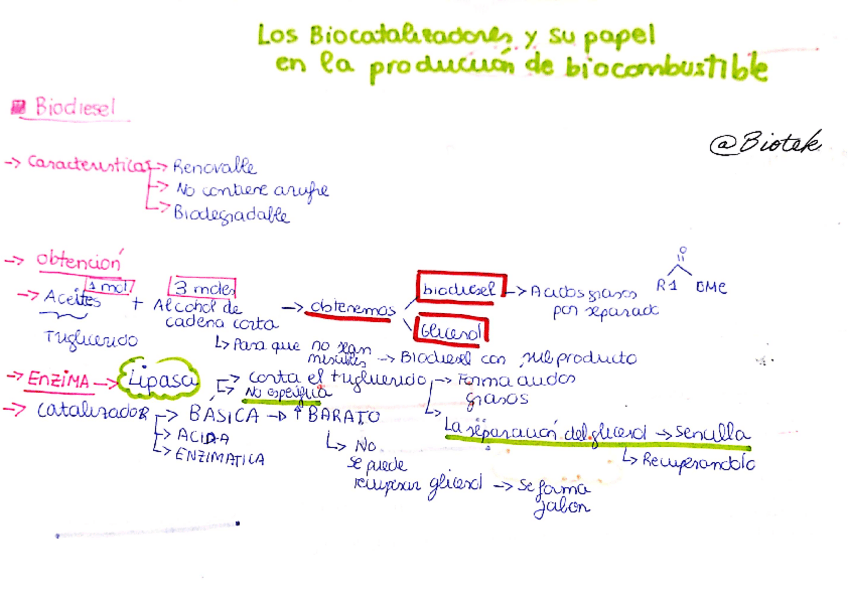 Los Biocatalizadores y su papel
en la producción de biocombustible
Biodiesel
@Biotek
-> Características -> Renovable
-> No contiene azufre
-> Biodegradable
-> Obtención
-> Aceites 1 mol + Alcohol de cadena corta 3 moles -> obtenemos biodiesel -> Acidos grasos por separado
Glicerol
O
R1 OME
Triglicerido
-> Para que no sean miscibles -> Biodiesel con subproducto
-> ENZIMA -> Lipasa -> Corta el triglicerido -> Forma acidos grasos
-> No especifica
-> La separación del glicerol -> Sencilla
-> Recuperandolo
-> Catalizador -> BASICA -> ↑ BARATO
-> ACIDA
-> ENZIMATICA
-> No se puede recuperar glicerol -> Se forma jabon